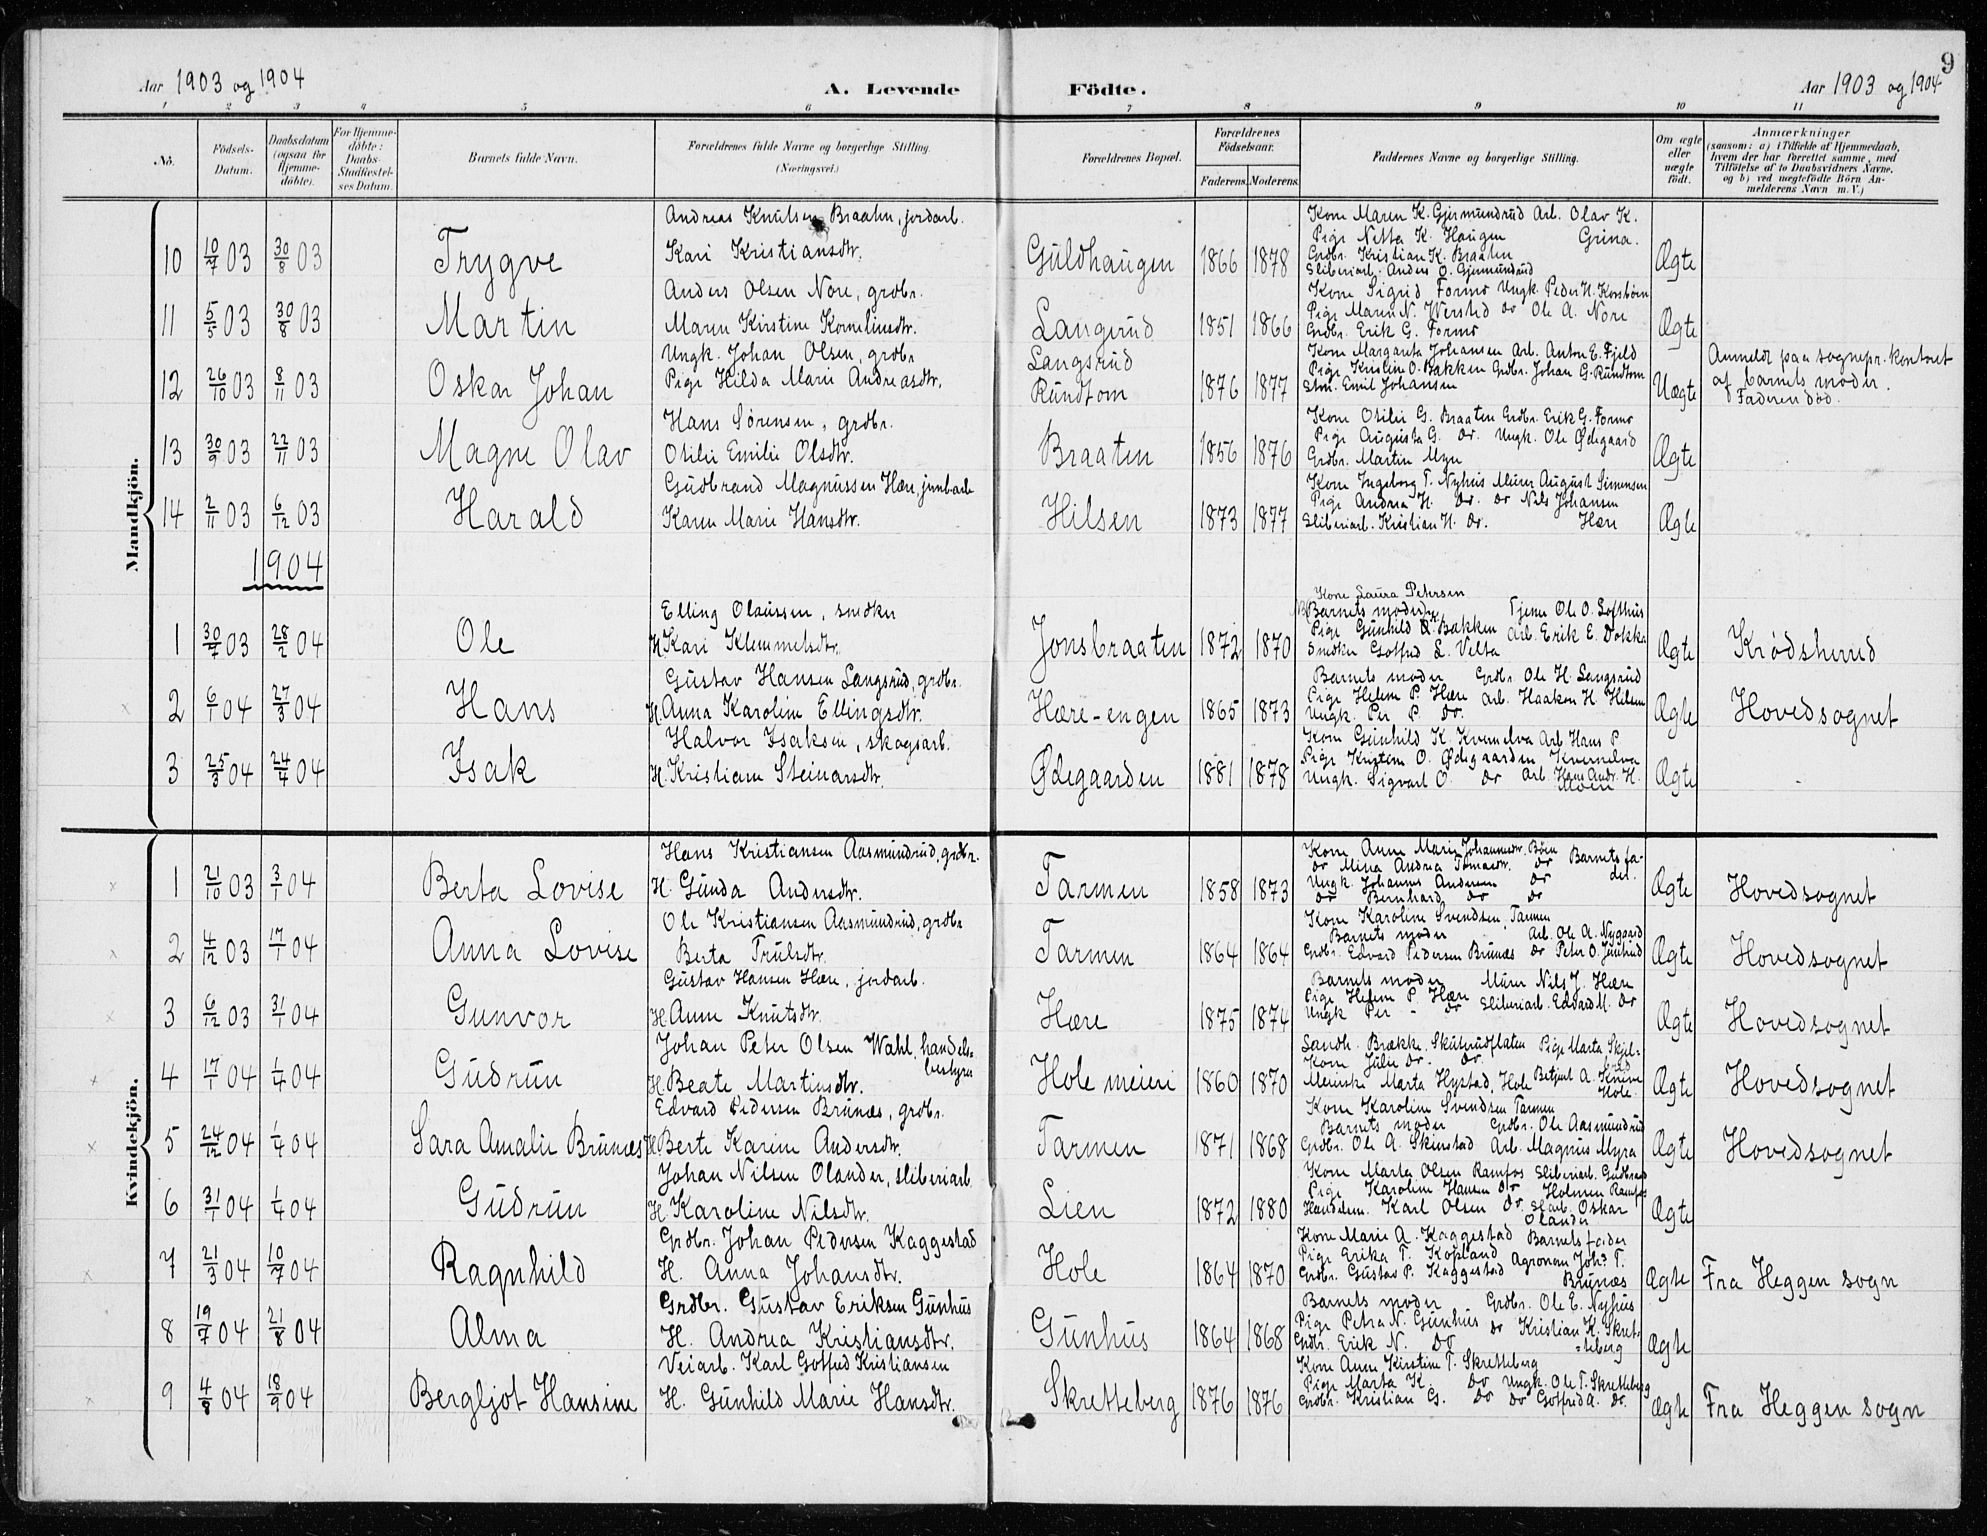 9
Aar 1903 og 1904
A. Levende Födte.
Aar 1903 og 1904
1 2 3 4 5 6 7 8 9 10 11
No.
Födsels-Datum.
Daabsdatum (ogsaa for Hjemme-döbte).
For Hjemme-döbte: Daabs-Stadfæstel-ses Datum.
Barnets fulde Navn.
Forældrenes fulde Navne og borgerlige Stilling. (Næringsvei.)
Forældrenes Bopæl.
Forældrenes Födselsaar.
Faderens. Moderens.
Faddernes Navne og borgerlige Stilling.
Om ægte eller uægte födt.
Anmærkninger
(saasom: a) i Tilfælde af Hjemmedaab, hvem der har forrettet samme, med Tilföielse af to Daabsvidners Navne, og b) ved uægtefödte Börn An-melderens Navn m. V.)
Mandkjön.
Andreas Knutsen Braaten, jordarb.
10 10/7 03 30/8 03 Trygve Kari Kristiansdtr. Guldhaugen 1866 1878 Ægte
Kone Maren K. Gjermundrud Arb. Olav K. Grina.
Pige Netta K. Haugen
Grdbr. Kristian K. Braaten
Sliberiarb. Anders O. Gjermundrud
Anders Olsen Nore, grdbr.
11 5/5 03 30/8 03 Martin Maren Kirstine Korneliusdtr. Langerud 1851 1866 Ægte
Kone Sigrid Formo Ungk. Peder N.
Pige Maren N. Wersted do Ole A. Nore
Grdbr. Erik G. Formo
Ungk. Johan Olsen, grdbr. Langsrud
12 26/10 03 8/11 03 Oskar Johan Pige Hilda Marie Andreasdtr. Rundtom 1876 1877 Uægte
Kone Margareta Johansen Arb. Anton E. Fjeld
Pige Kristine O. Bakken Grdbr. Johan G. Rundtom
Emil Johansen
Anmeldt paa sognepr. kontoret
af barnets moder.
Faderen död.
Hans Sørensen, grdbr.
13 30/9 03 22/11 03 Magne Olav Otilie Emilie Olsdtr. Braaten 1856 1876 Ægte
Kone Otilie G. Braaten Grdbr. Erik G. Formo
Pige Augusta G. do. Ungk. Ole Ødegaard
Grdbr. Martin Myre
Gudbrand Magnussen Hære, jernbarb.
14 2/11 03 6/12 03 Harald Karen Marie Hansdtr. Hilsen 1873 1877 Ægte
Kone Ingeborg T. Nyhus Murer August Simensen
Pige Andrea H. do. do Nils Johansen
Sliberiarb. Kristian H. do. Hære
1904
Elling Olaussen, snedker
1 30/7 03 28/2 04 Ole H. Kari Klemmetsdtr. Jonsbraaten 1872 1870 Ægte Krødsherred
Kone Laura Petersen
Barnets moder Tjener Ole O. Lofthus
Pige Gunhild O. Bakken Arb. Erik E. Dokka
Snedker Gotfred L. Velta
Gustav Hansen Langsrud, grdbr.
2 6/1 04 27/3 04 Hans H. Anna Karoline Ellingsdtr. Hære-engen 1865 1873 Ægte Hovedsognet
Barnets moder Grdbr. Ole H. Langsrud
Pige Helene P. Hære Arb. Haaken H. Helem
Ungk. Per P. do.
Halvor Isaksen, skogsarb.
3 25/3 04 24/4 04 Isak H. Kristiane Steinarsdtr. Ødegaarden 1881 1878 Ægte
Kone Gunhild K. Kvernelva Arb. Hans P. Kvernelva
Pige Kirstine O. Ødegaarden
Ungk. Sigvart O. do Arb. Hans Andr. H. Moen
Kvindekjön.
Hans Kristiansen Aasmundrud, grdbr.
1 21/10 03 3/1 04 Berta Lovise H. Gunda Andersdtr. Tarmen 1858 1873 Ægte Hovedsognet
Kone Anne Marie Johannesdtr. Böen Barnets fa-
do Mina Andrea Tomasdtr. do der.
Ungk. Johannes Andersen do
do Bernhard do do
Ole Kristiansen Aasmundrud, grdbr.
2 4/12 03 17/1 04 Anna Lovise Berta Trulsdtr. Tarmen 1864 1864 Ægte Hovedsognet
Kone Karoline Svendsen, Tarmen
Barnets moder Arb. Ole A. Nygaard
Grdbr. Edvard Pedersen Brunæs do Peter O.
Gustav Hansen Hære, jordarb.
3 6/12 03 31/1 04 Gunvor H. Anne Knutsdtr. Hære 1875 1874 Ægte Hovedsognet
Barnets moder Murer Nils J. Hære
Pige Helene P. Hære Sliberiarb. Edvard M. do
Ungk Per - do
Johan Peter Olsen Wahl, handels-
bestyrer
4 17/1 04 1/4 04 Gudrun H. Beate Martinsdtr. Hole meieri 1860 1870 Ægte Hovedsognet
Landh. Brække, Skuterudflaten Pige Marta
Kone Julie do. do.
Meierske Marta Hystad, Hole Betjent A. Hole.
Edvard Pedersen Brunæs, grdbr.
5 24/12 04 1/4 04 Sara Amalie Brunæs H. Berte Karine Andersdtr. Tarmen 1871 1868 Ægte Hovedsognet
Kone Karoline Svendsen Tarmen
Barnets moder Grdbr. Ole Aasmundrud
Grdbr. Ole A. Skinstad Arb. Magnus Myra
Johan Nilsen Olander, sliberiarb.
6 31/1 04 1/4 04 Gudrun H. Karoline Nilsdtr. Lien 1872 1880 Ægte
Kone Marta Olsen Ramfos Sliberiarb. Gudbrand
Pige Karoline Hansen do Holmen Ramfos
Handelsm. Karl Olsen do. Slarb. Oskar Olander
Grdbr. Johan Pedersen Kaggestad
7 21/3 04 10/7 04 Ragnhild H. Anna Johansdtr. Hole 1864 1870 Ægte Fra Heggen sogn
Kone Marie A. Kaggestad Barnets fader
Pige Erika T. Kopland Agronom Joh.s T. Brunæs
Grdbr. Gustav P. Kaggestad
Grdbr. Gustav Eriksen Gunhus
8 19/7 04 21/8 04 Alma H. Andrea Kristiansdtr. Gunhus 1864 1868 Ægte
Barnets moder Grdbr. Ole E. Nyhus
Pige Petra N. Gunhus do Kristian K. Skret-
Grdbr. Erik N. do =teberg
Veiarb. Karl Gotfred Kristiansen
9 4/8 04 18/9 04 Bergljot Hansine H. Gunhild Marie Hansdtr. Skretteberg 1876 1876 Ægte Fra Heggen sogn
Kone Anne Kirstine T. Skretteberg
Pige Marta K. do Ungk. Ole T. Skretteberg
Grdbr. Kristian G. do do Gotfred A. do.